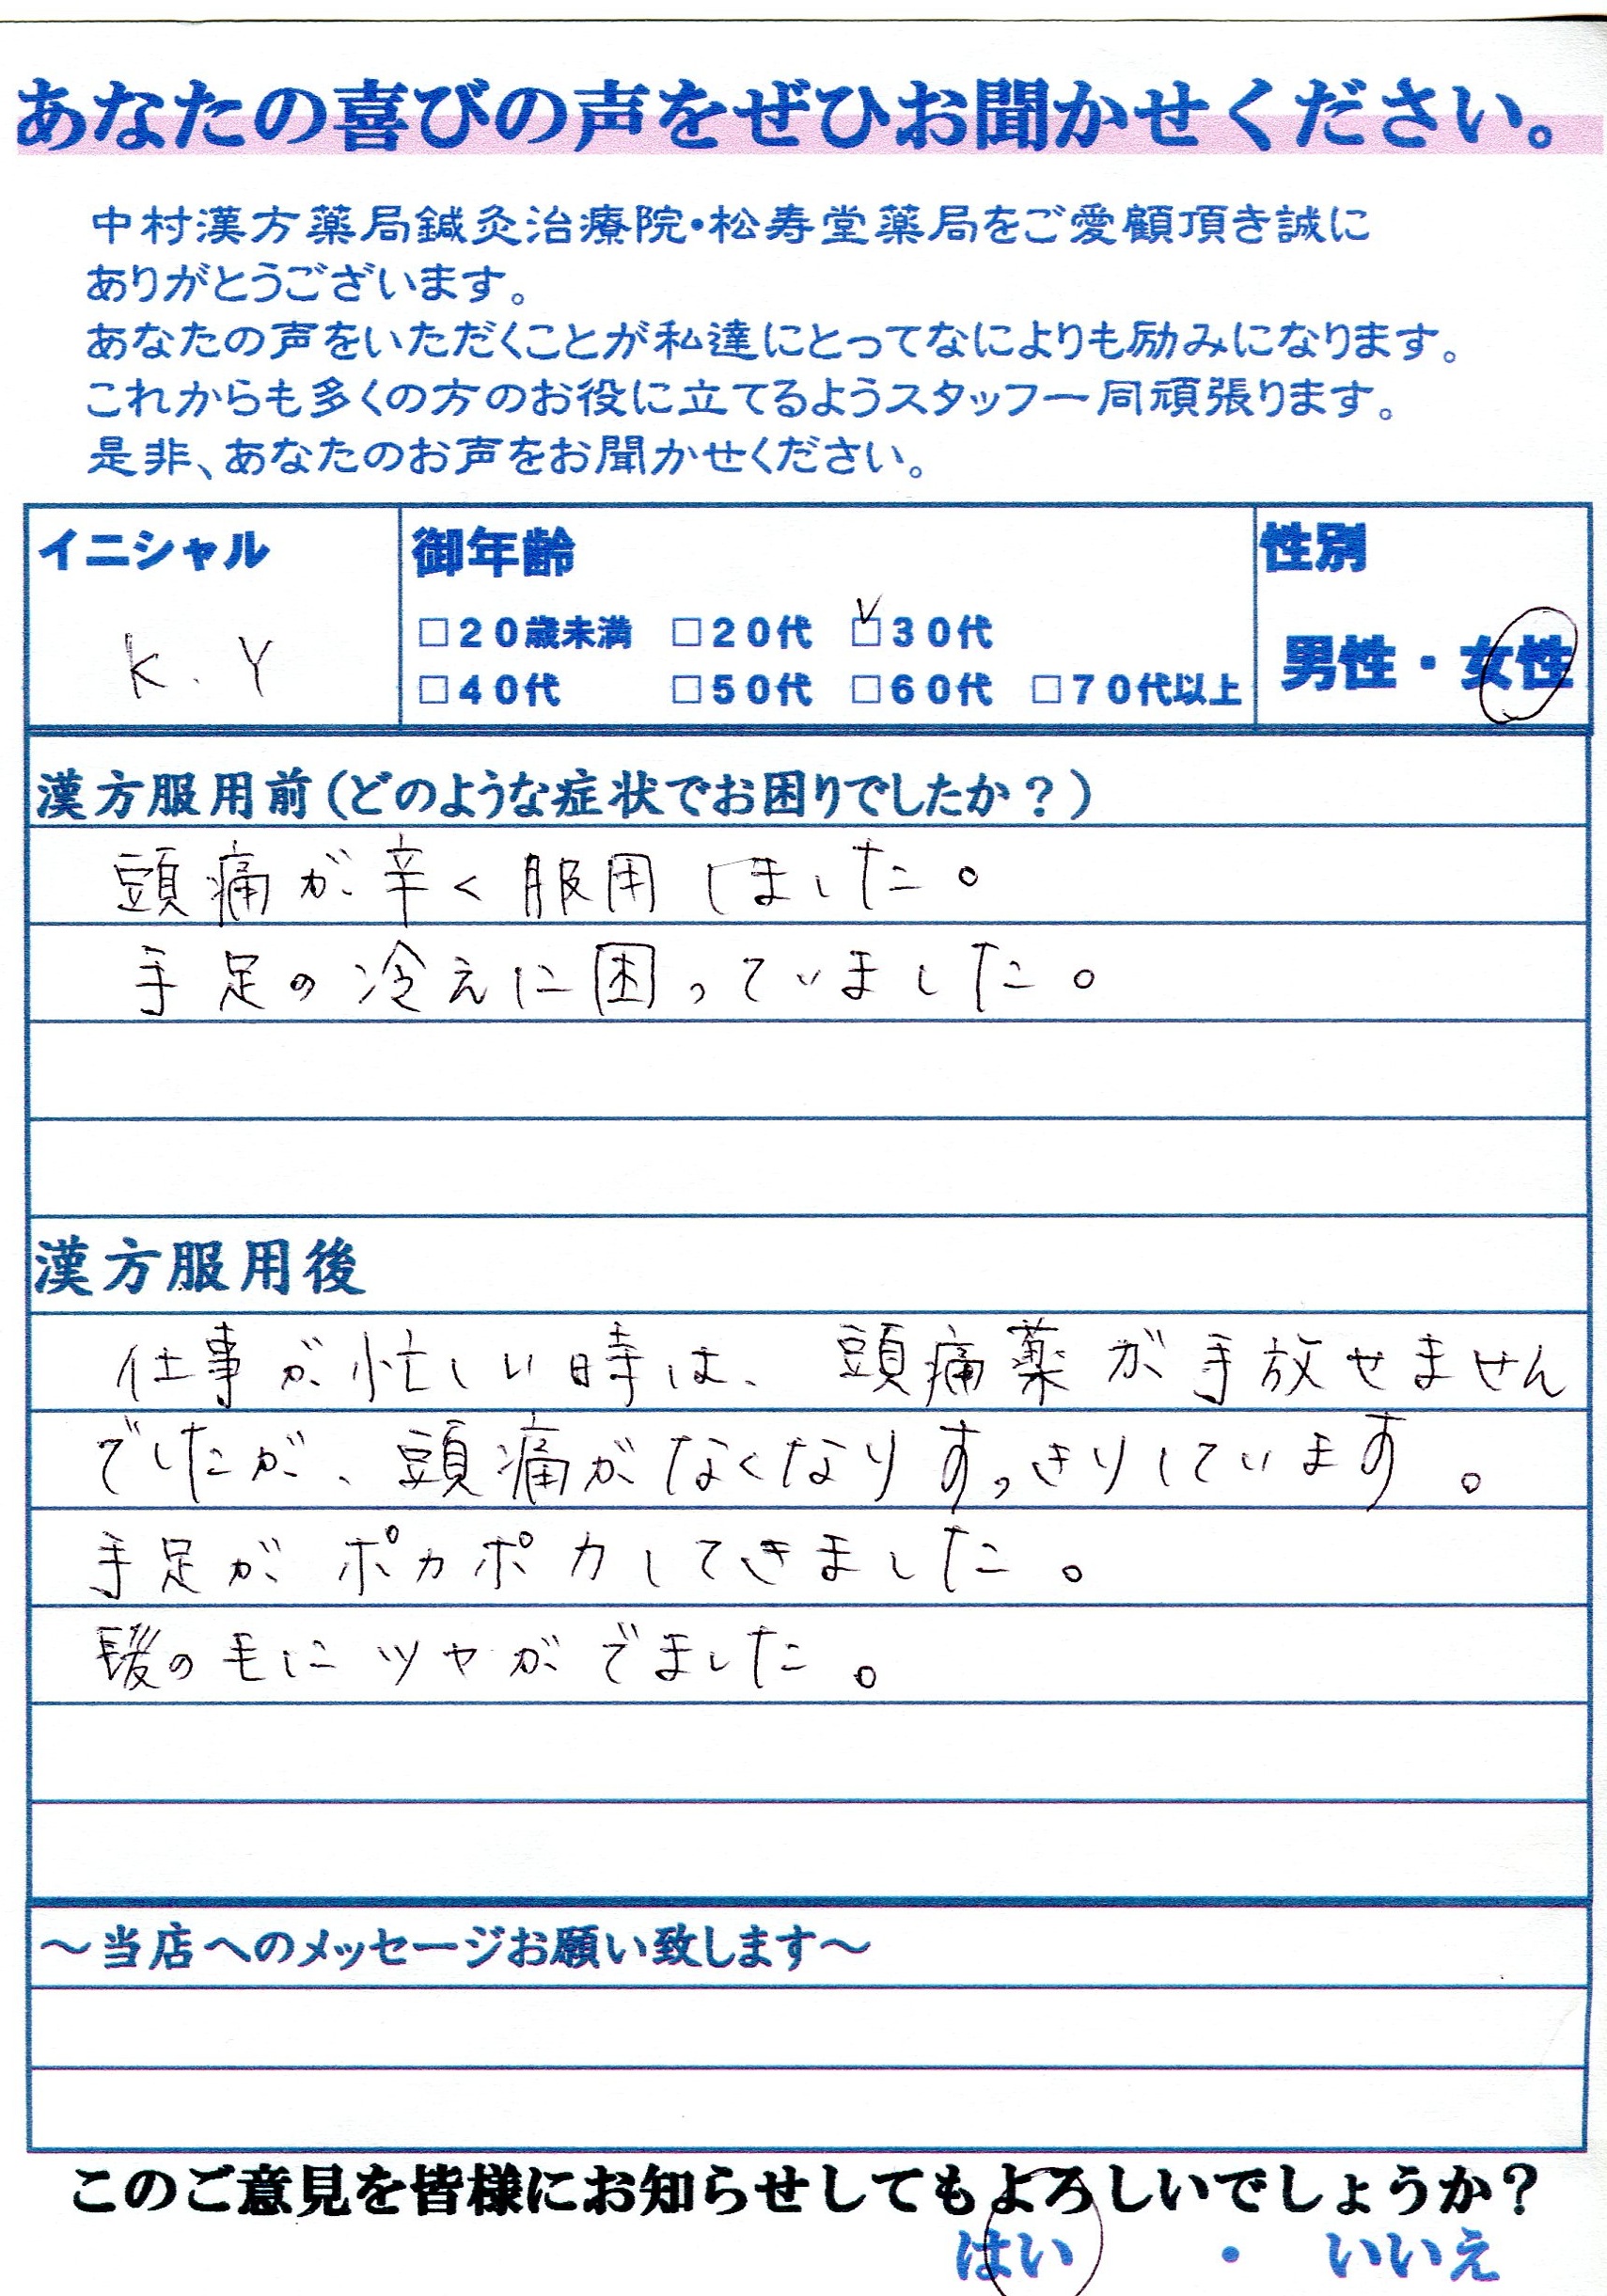 あなたの喜びの声をぜひお聞かせください。
中村漢方薬局鍼灸治療院・松寿堂薬局をご愛顧頂き誠に
ありがとうございます。
あなたの声をいただくことが私達にとってなによりも励みになります。
これからも多くの方のお役に立てるようスタッフ一同頑張ります。
是非、あなたのお声をお聞かせください。
イニシャル 御年齢 性別
□20歳未満 □20代 ☑30代
K.Y 男性・女性
□40代 □50代 □60代 □70代以上
漢方服用前(どのような症状でお困りでしたか?)
頭痛が辛く服用しました。
手足の冷えに困っていました。
漢方服用後
仕事が忙しい時は、頭痛薬が手放せません
でしたが、頭痛がなくなりすっきりしています。
手足がポカポカしてきました。
髪の毛にツヤがでました。
~当店へのメッセージお願い致します~
このご意見を皆様にお知らせしてもよろしいでしょうか?
はい・いいえ